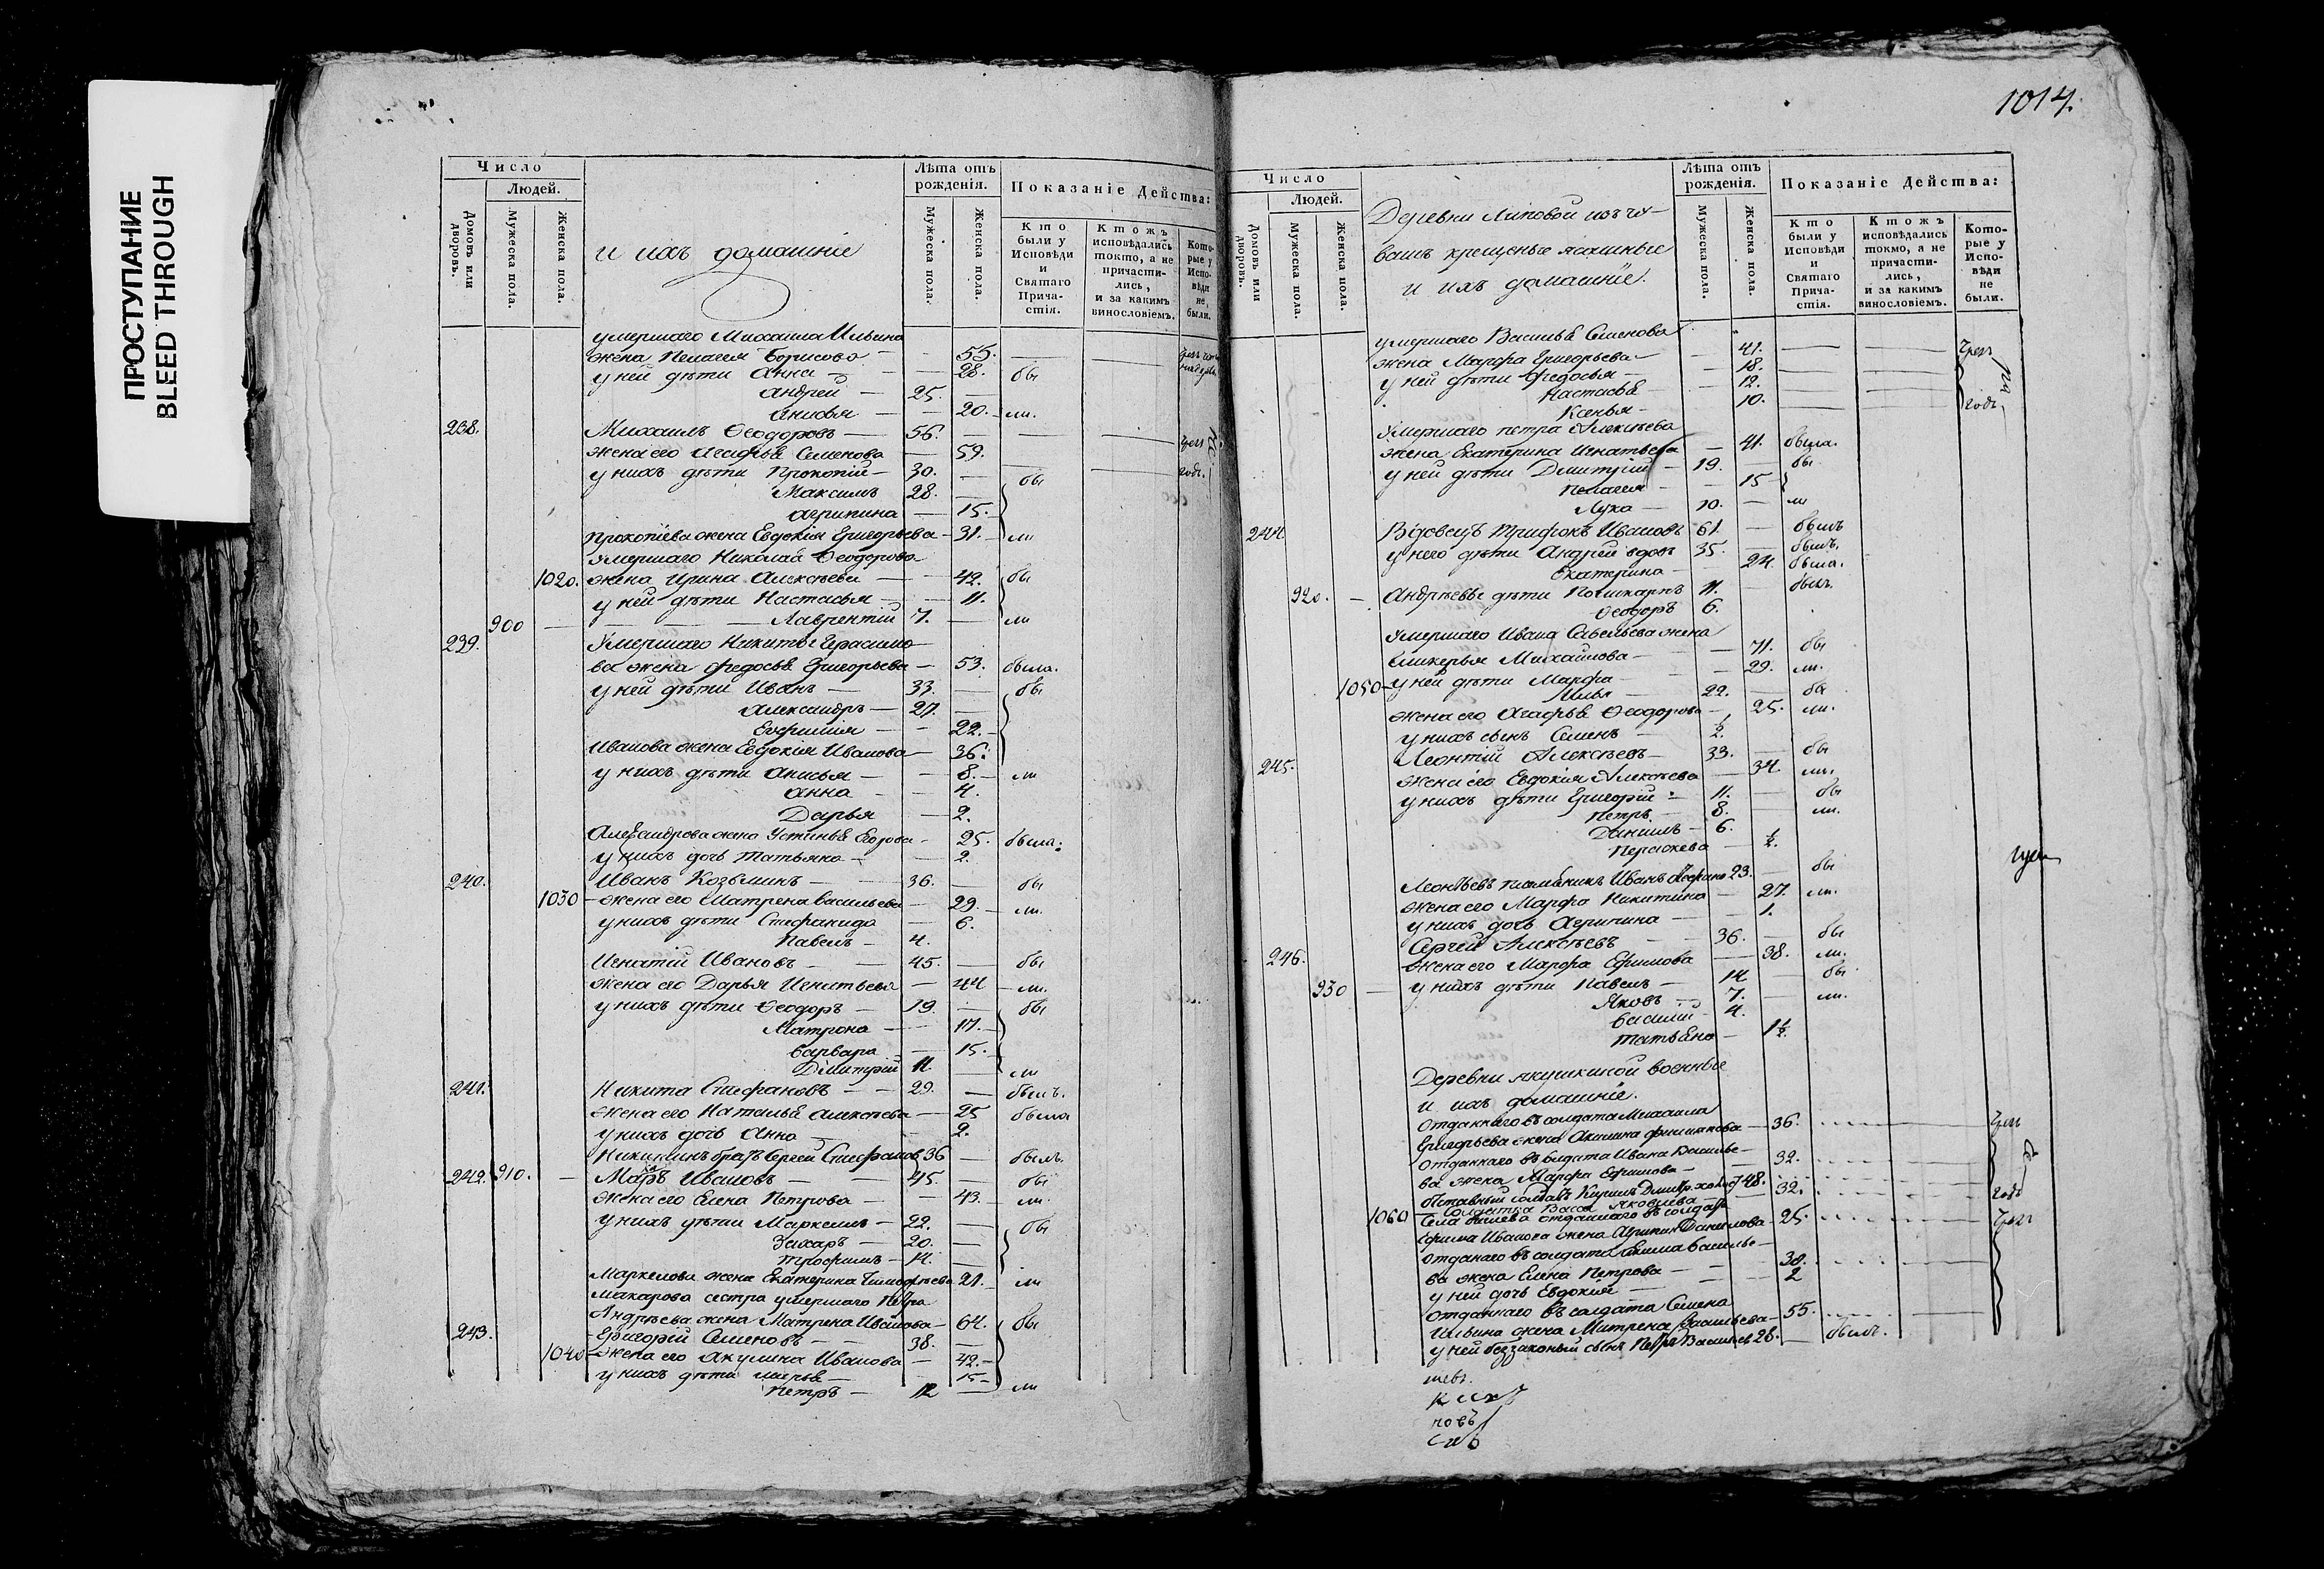 ПРОСТУПАНИЕ
BLEED THROUGH
Число
Людей.
Домовъ или дворовъ.
Мужеска пола.
Женска пола.
и ихъ домашніе
Лѣта отъ рожденія.
Мужеска пола.
Женска пола.
Показаніе Действа:
Кто были у Исповѣди и Святаго Прича-стія.
Ктожъ исповѣдались токмо, а не причасти-лись, и за какимъ винословіемъ.
Кото-рые у Испо-вѣди не были.
умершаго Михаила Ильина
жена Пелагея Борисова — 55.
у ней дѣти Анна — 28. бы
Андрей — 25.
Анисья — 20. ли.
238. Михаилъ Ѳеодоровъ — 56.
жена его Агафья Семенова — 59.
у нихъ дѣти Прокопій — 30. бы
Максимъ 28.
Агрипина — 15.
Прокопіева жена Евдокія Григорьева — 31. ли
Умершаго Николая Ѳеодорова
1020. жена Ирина Алексѣева — 42. бы
у ней дѣти Настасья — 11.
900 Лаврентій 7. ли
239. Умершаго Никиты Герасимо
ва жена Федосья Григорьева — 53. была.
у ней дѣти Иванъ — 33. бы
Александръ — 27.
Евфимія — 22.
Иванова жена Евдокія Иванова — 36.
у нихъ дѣти Анисья — 8. ли
Анна — 4.
Дарья — 2.
Александрова жена Устинья Егорова — 25. была.
у нихъ дочь Татьяна — 2.
240. Иванъ Козьминъ — 36. бы
1030 жена его Матрена Васильева — 29. ли.
у нихъ дѣти Стефанида — 6.
Павелъ — 4.
Игнатій Ивановъ — 45. бы
жена его Дарья Игнатьева — 44 ли.
у нихъ дѣти Ѳеодоръ — 19. бы
Матрона — 17.
Варвара — 15.
Димитрій 11. ли
241. Никита Стефановъ — 29. былъ.
жена его Наталья Алексѣева — 25 была
у нихъ дочь Анна — 2.
Никитинъ братъ Сергей Стефанов 36 былъ.
242. 910. Ивановъ — 45. бы
жена его Елена Петрова — 43. ли.
у нихъ дѣти Маркелъ — 22. бы
Захаръ — 20.
Трофимъ — 14.
Маркелова жена Екатерина Тимофѣева 21. ли
Макарова сестра умершаго Петра
Андрѣева жена Матрена Иванова — 64. бы
243. Григорій Семеновъ — 38.
1040 жена его Акулина Иванова — 42.
у нихъ дѣти Марья — 15
Петръ — 12 ли
1014.
Число
Людей.
Домовъ или дворовъ.
Мужеска пола.
Женска пола.
Деревни Липовой изъ чу-
вашъ крещеные ясашные
и ихъ домашніе.
Лѣта отъ рожденія.
Мужеска пола.
Женска пола.
Показаніе Действа:
Кто были у Исповѣди и Святаго Прича-стія.
Ктожъ исповѣдались токмо, а не причасти-лись, и за какимъ винословіемъ.
Кото-рые у Испо-вѣди не были.
умершаго Василья Семенова
жена Марфа Григорьева — 41.
у ней дѣти Федосья — 18.
Настасья 12.
Ксенья — 10.
Умершаго Петра Алексѣева
жена Екатерина Игнатьева — 41. была.
у ней дѣти Дмитрій — 19. бы
Пелагея — 15
Лука — 10. ли
244 Вдовецъ Трифонъ Ивановъ 61. былъ
у него дѣти Андрей вдовъ 35. былъ.
Екатерина — 24. была.
920. Андрѣевы дѣти Поликарпъ 11. былъ
Ѳеодоръ 6.
Умершаго Ивана Савельева жена
Гликерья Михайлова — 71. бы
1050 у ней дѣти Марфа — 29. ли.
Илья — 22. бы
жена его Агафья Ѳеодорова — 25. ли.
у нихъ сынъ Семенъ — ½.
245. Леонтій Алексѣевъ — 33. бы
жена его Евдокія Алексѣева — 34. ли.
у нихъ дѣти Григорій — 11. бы
Петръ — 8. ли.
Даниилъ — 6.
Параскева — ½.
Леонтьевъ племянникъ Иванъ 23. бы
жена его Марфа Никитина — 27. ли.
у нихъ дочь Агрипина — 1.
246. Сергей Алексѣевъ 36. бы
жена его Марфа Ефимова — 38. ли.
930 у нихъ дѣти Павелъ — 14. бы
Яковъ — 7. ли.
Василій — 4.
Татьяна — 1½.
Деревни Якушкиной военные
и ихъ домашніе.
отданнаго въ солдата Михаила
Григорьева жена Акилина Филипова — 36.
отданнаго въ солдата Ивана Василье
ва жена Марфа Ефимова — 32.
Отставный солдатъ Кирилъ Дмитр. холос 48.
Солдатка Васса Яковлева — 32.
1060 отданнаго въ солдат
Ефима Иванова жена Агрипина Данилова — 25.
отданаго въ солдата Василье-
ва жена Елена Петрова — 30.
у ней дочь Евдокія — 2
отданнаго въ солдата Семена
Ильина жена Матрена Васильева — 55.
у ней беззаконный сынъ Петръ Васильев 28. былъ.